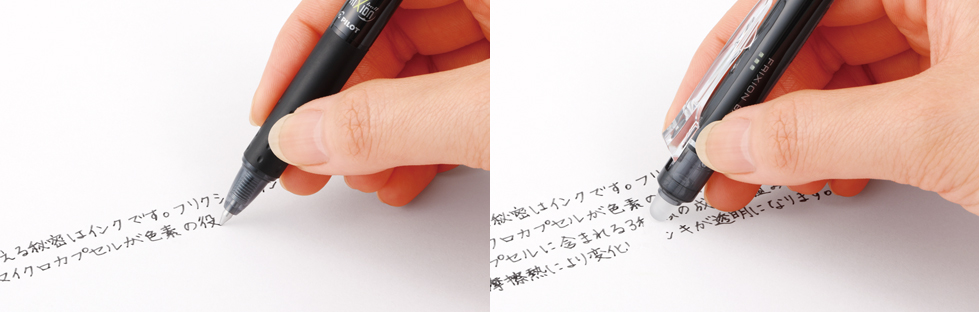 FRIXION
PILOT
える秘密はインクです。フリクシ
マイクロカプセルが色素の役
FRIXION
秘密はインクです。フリ
クロカプセルが色素の
の放
プセルに含まれる3
ンキが透明になります。
摩擦熱により変化